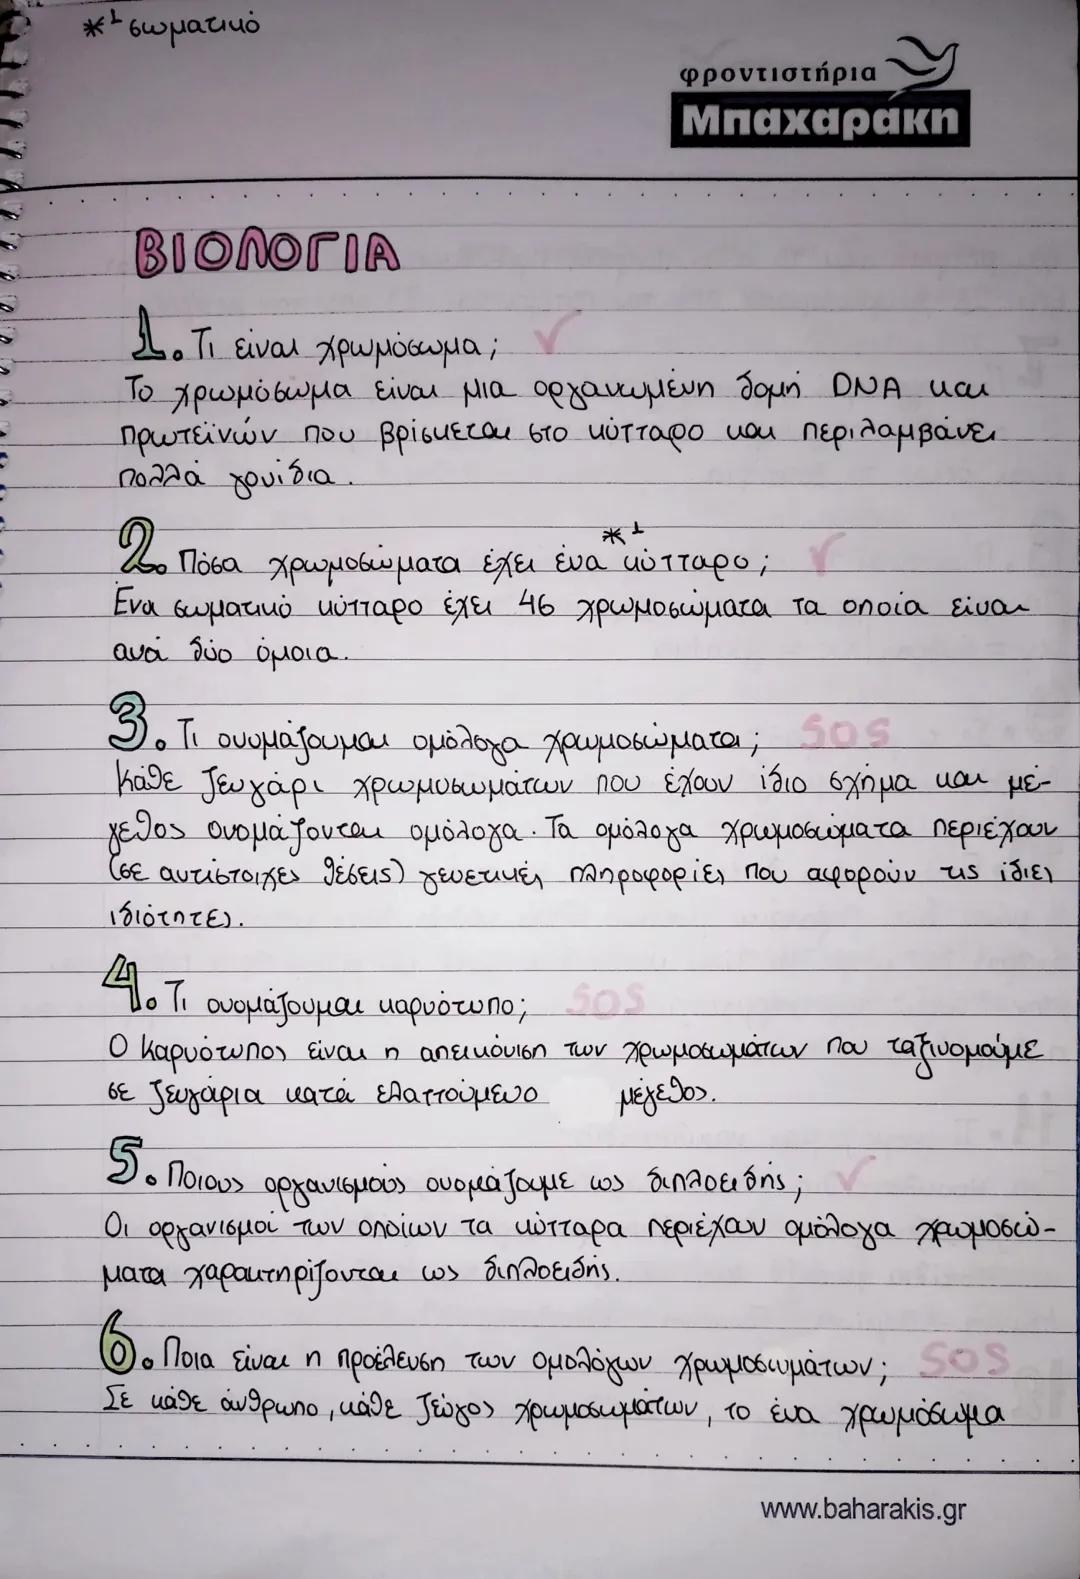 *¹ σωματικό
φροντιστήρια
Μπαχαράκη
ΒΙΟΛΟΓΙΑ
1. Τι είναι χρωμόσωμα; ✓
Το χρωμόσωμα είναι μια οργανωμένη δομή DNA και
πρωτεϊνών που βρίσκεται στο κύτταρο και περιλαμβάνει
πολλά γονίδια.
*¹
2. Πόσα χρωμοσώματα έχει ένα κύτταρο; ✓
Ένα σωματικό κύτταρο έχει 46 χρωμοσώματα τα οποία είναι
ανά δύο όμοια.
3. Τι ονομάζουμαι ομόλογα χρωμοσώματα; SOS
Κάθε ζευγάρι χρωμοσωμάτων που έχουν ίδιο σχήμα και μέ-
γεθος ονομάζονται ομόλογα. Τα ομόλογα χρωμοσώματα περιέχουν
(σε αντίστοιχες θέσεις) γενετικές πληροφορίες που αφορούν τις ίδιες
ιδιότητες.
4. Τι ονομάζουμαι καρυότυπο; SOS
Ο καρυότυπος είναι η απεικόνιση των χρωμοσωμάτων που ταξινομούμε
σε ζευγάρια κατά ελαττούμενο μέγεθος.
5. Ποιους οργανισμούς ονομάζουμε ως διπλοειδής; ✓
Οι οργανισμοί των οποίων τα κύτταρα περιέχουν ομόλογα χρωμοσώ-
ματα χαρακτηρίζονται ως διπλοειδής.
6. Ποια είναι η προέλευση των ομολόγων χρωμοσωμάτων; SOS
Σε κάθε άνθρωπο, κάθε ζεύγος χρωμοσωμάτων, το ένα χρωμόσωμα
www.baharakis.gr